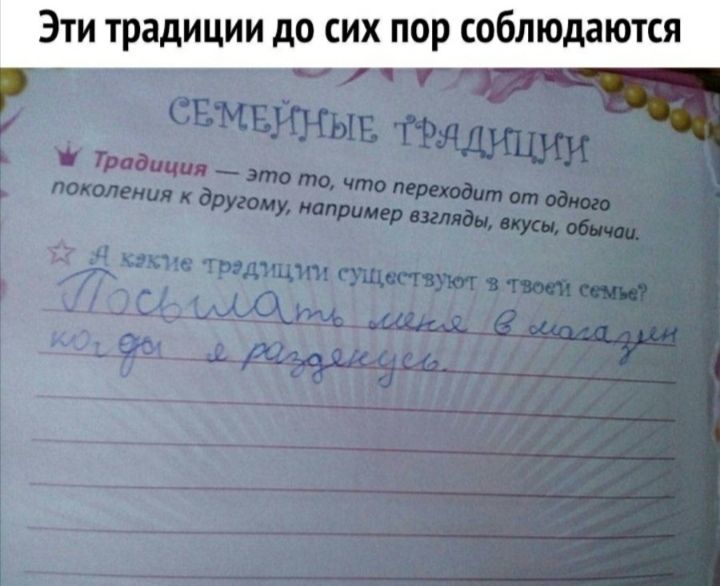 Эти традиции до сих пор соблюдаются
СЕМЕЙНЫЕ ТРАДИЦИИ
Традиция — это то, что переходит от одного
поколения к другому, например взгляды, вкусы, обычаи.
А какие традиции существуют в твоей семье?
Посылать меня в магазин
когда я разденусь.